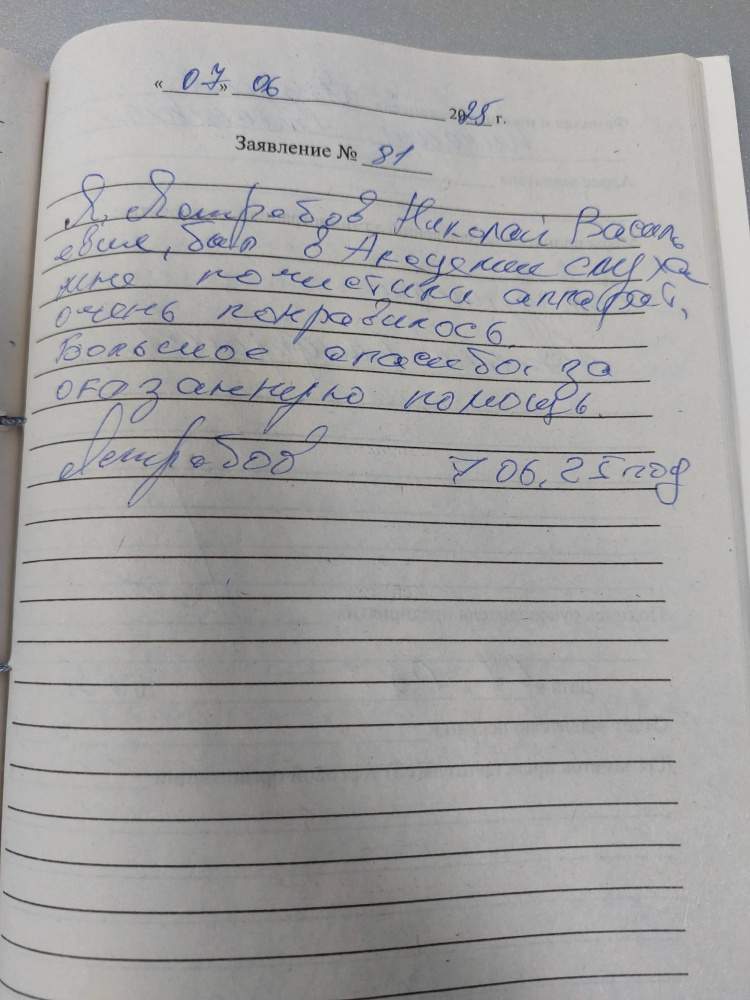 « 07 » 06 2025 г.
Заявление № 81
Я, Ястребов Николай Василь
евич, был в Академии слуха
мне почистили аппарат,
очень понравилось.
Большое спасибо за
оказанную помощь.
Ястребов 7 06. 25 год